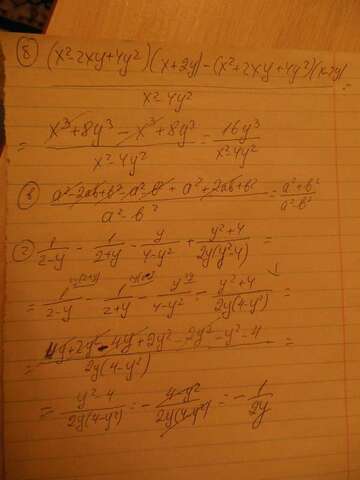 б) (x²-2xy+4y²)(x+2y)-(x²+2xy+4y²)(x-2y)/x²-4y² =
= x³+8y³-x³+8y³/x²-4y² = 16y³/x²-4y²
в) a²-2ab+b²-a²-b²+a²+2ab+b²/a²-b² = a²+b²/a²-b²
г) 1/2-y - 1/2+y - y/4-y² + y²+4/2y(y²-4) =
= 1/2-y - 1/2+y - y/4-y² - y²+4/2y(4-y²) =
= 4y+2y²-4y+2y²-2y²-y²-4/2y(4-y²) =
= y²-4/2y(4-y²) = - 4-y²/2y(4-y²) = - 1/2y